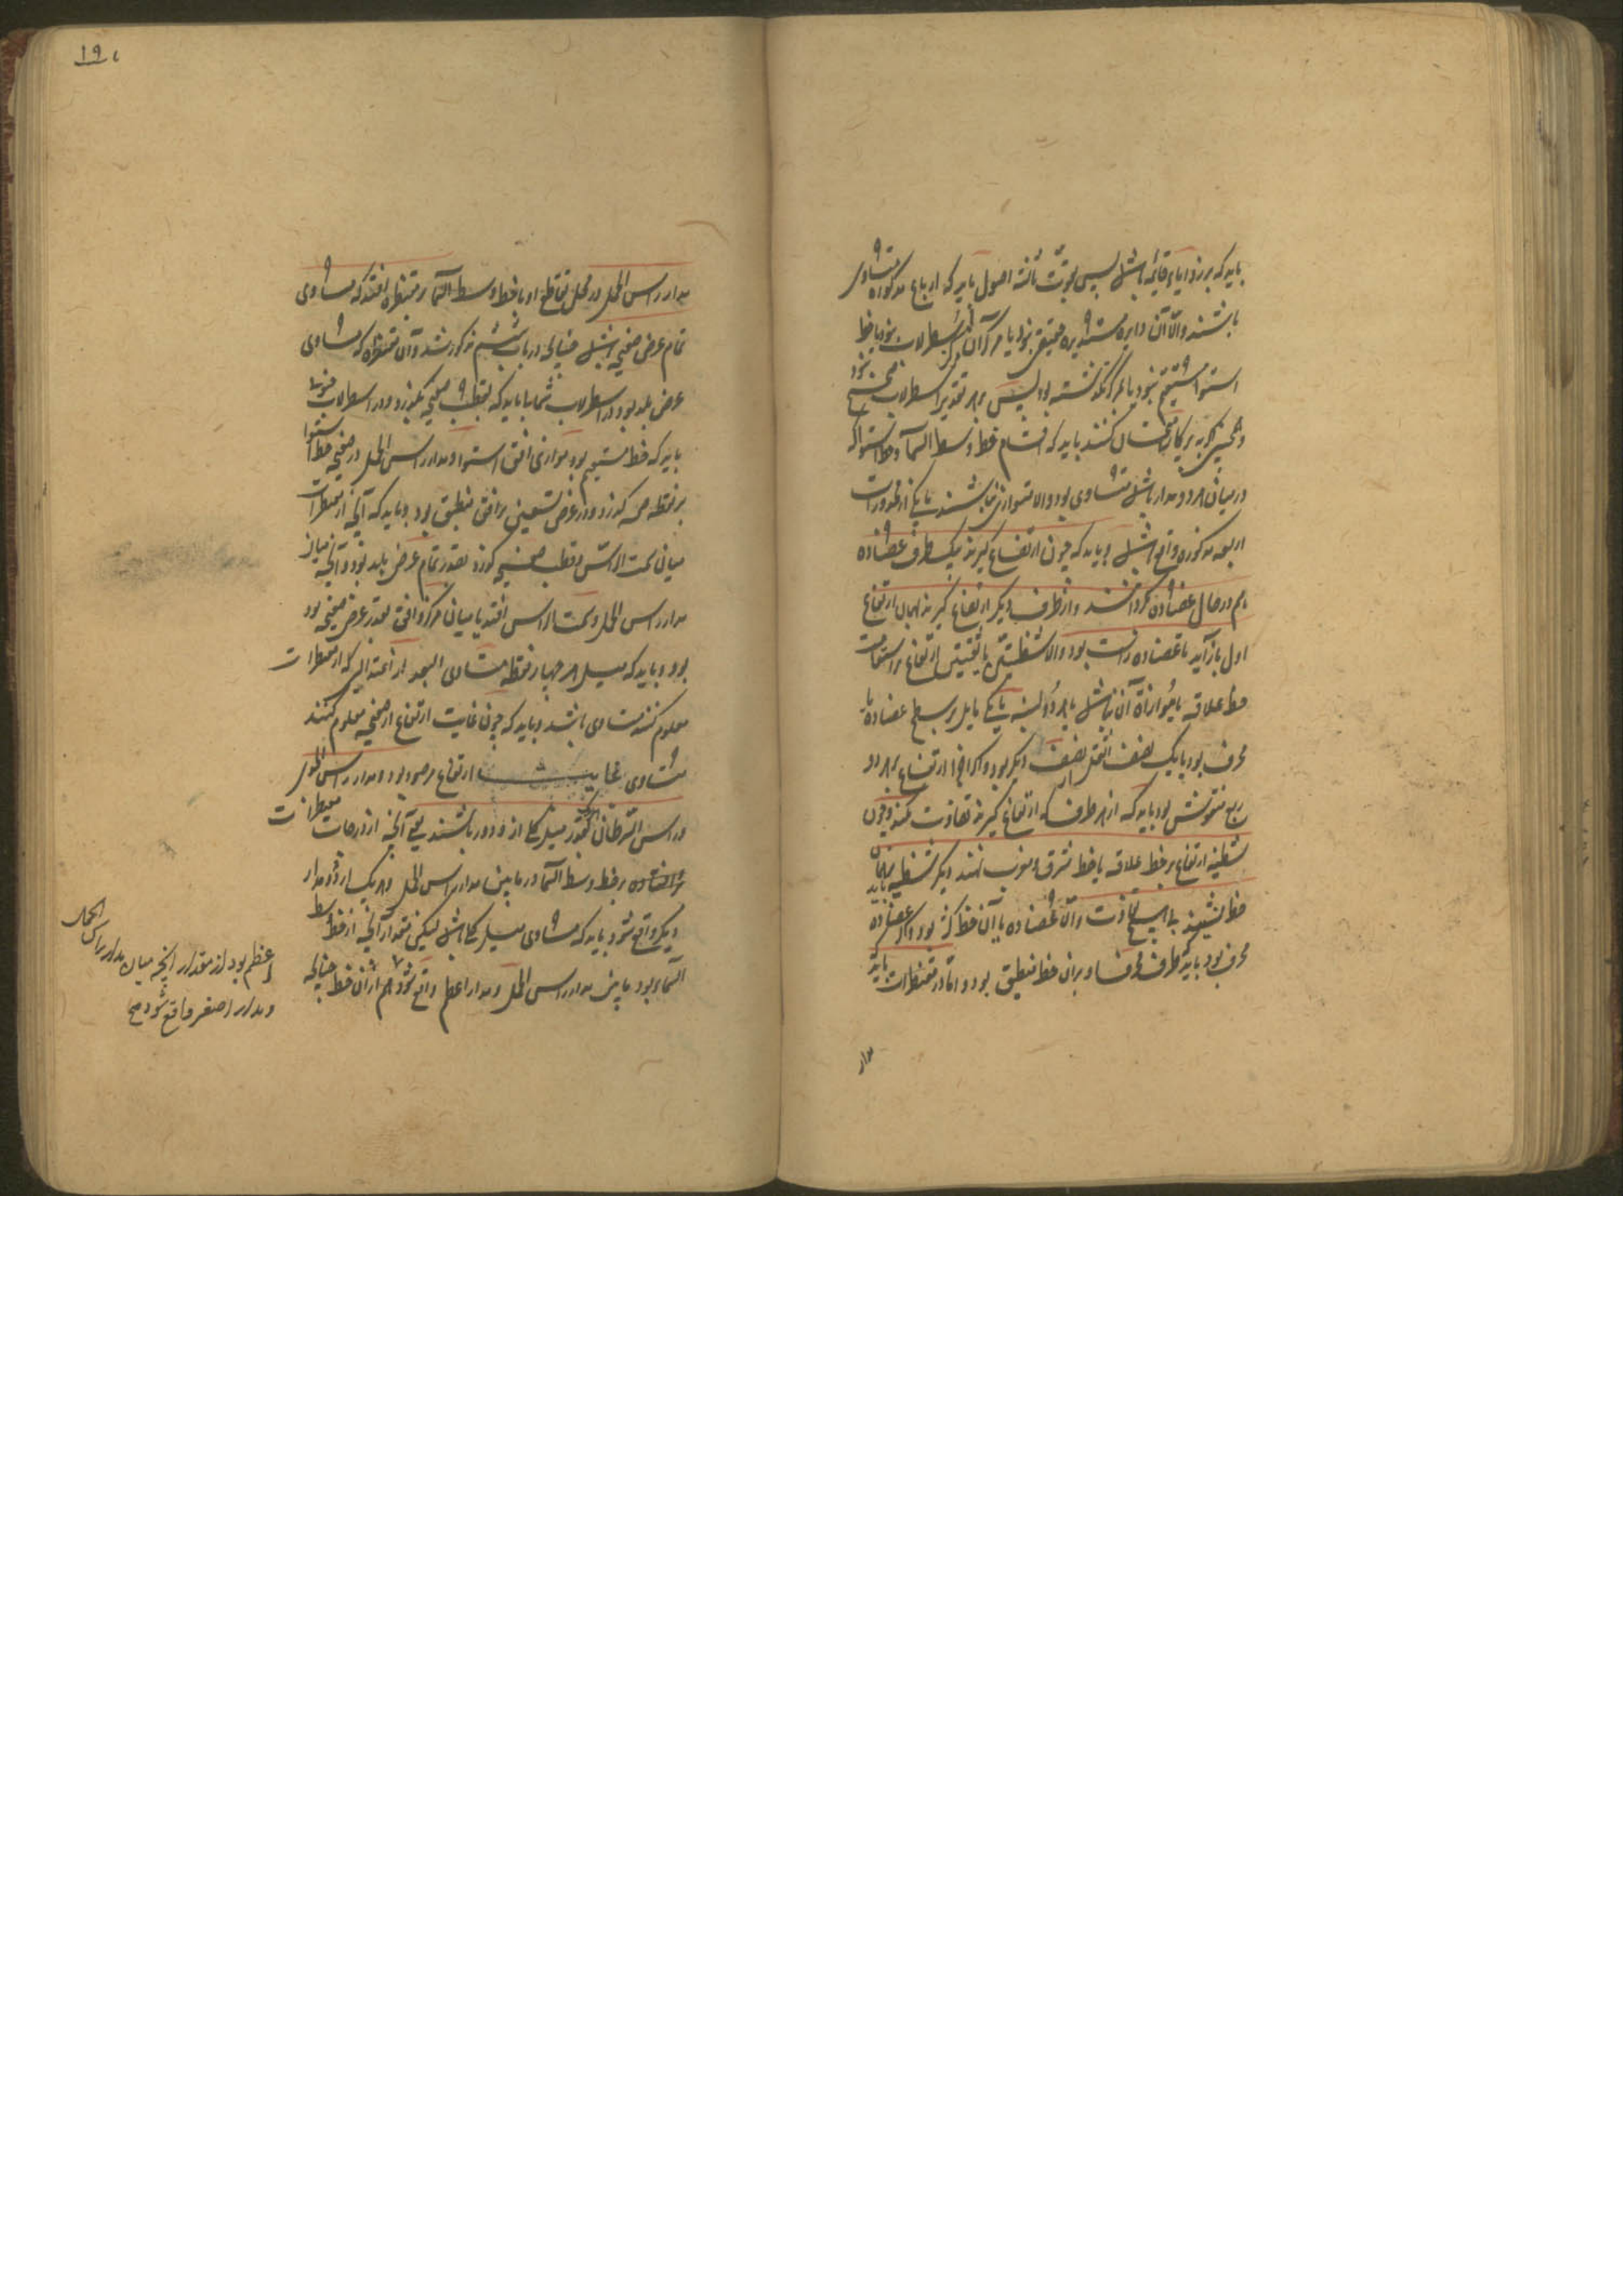 باید که بر زوایاء قائمه باشد پس بوجب ثامنه اصول باید که ارباع مذکوره متساوی
باشند والّا آن دایره مستدیره حقیقی نبود یا مرکز آن مرکز اسطرلاب نبود یا خط
استوا مستقیم نبود یا بمرکز نگذشته بود پس بهر تقدیر اسطرلاب صحیح نبود
و همچنین که به پرکار امتحان کنند باید که اقسام خط وسط السماء و خط استوا که
در میان هر دو مدار باشد متساوی بود والا متوازی نباشند یا یکی از محذورات
اربعه مذکوره واقع باشد و باید که چون ارتفاع گیرند بیک طرف عضاده
هم در حال عضاده بگردانند و از طرف دیگر ارتفاع گیرند همان ارتفاع
اول باز آید تا عضاده راست بود والا شظیتین یا ثقبتین ارتفاع بر استقامت
خط علاقه یا موازاة آن نباشد یا هر دو لبنه یا یکی مایل بر سطح عضاده یا
محرف بود یا یک نصف اثقل از نصف دیگر بود و اگر اجزاء ارتفاع بهر دو
ربع منقوش بود باید که از هر طرف که ارتفاع گیرند تفاوت نکند و چون
شظیه ارتفاع بر خط علاقه یا خط مشرق و مغرب نهند دیگر شظیه بر همان باید
خط نشیند بی هیچ تفاوت و آن عضاده با آن خط کژ بود و اگر عضاده
محرف بود باید که طرف محرف او بران خط منطبق بود و اما در مقنطرات باید
مدار
۱۹۰
مدار راس الحمل در محل تقاطع او با خط وسط السماء بر مقنطره افتد که مساوی
تمام عرض صفحه باشد چنانکه در باب ششم مذکور شد و آن مقنطره که مساوی
عرض بلد بود در اسطرلاب شمالی باید که بقطب صفحه بگذرد و در اسطرلاب جنوبی
باید که خط مستقیم بود موازی افق استوا و مدار راس الحمل در صفحه خط استوا
بر نقطه ص گذرد و در عرض تسعین بر افق منطبق بود و باید که آنچه از مقنطرات
میان سمت الراس و قطب صفحه گذرد بقدر تمام عرض بلد بود و آنچه میان
مدار راس الحمل و سمت الراس افتد یا میان مرکز و افق بقدر عرض صفحه بود
بود و باید که میل هر چهار نقطه متساوی البعد از اعتدالین که از مقنطرات
معلوم کنند متساوی باشد و باید که چون غایت ارتفاع از صفحه معلوم کنند
مساوی غایت ارتفاع مرصود بود و مدار راس الحمل
و راس السرطان بقدر میل کلی از و دور باشند یعنی آنچه از درجات مقنطرات
بر خط وسط السماء در مابین مدار راس الحمل و هر یک از دو مدار
دیگر واقع شود باید که مساوی میل کلی باشد لیکن مقدار آنچه از خط وسط
السماء بود مابین مدار راس الحمل و مدار اعظم واقع شود هم از آن خط چنانکه
اعظم بود از مقدار آنچه میان مدار راس الحمل
و مدار اصغر واقع شود صح